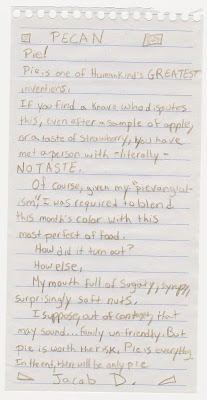 PECAN
Pie!
Pie is one of Humankind's GREATEST
inventions.
If you find a knave who disputes
this, even after a sample of apple,
or a taste of strawberry, you have
met a person with -literally-
NO TASTE.
Of course, given my "pievangelat-
ism," I was required to blend
this month's color with this
most perfect of food.
How did it turn out?
How else,
My mouth full of sugary, syrupy,
surprisingly soft nuts.
I suppose, out of context, that
may sound... family un-friendly. But
pie is worth the risk. Pie is everything.
In the end, there will be only pie.
Jacob D.